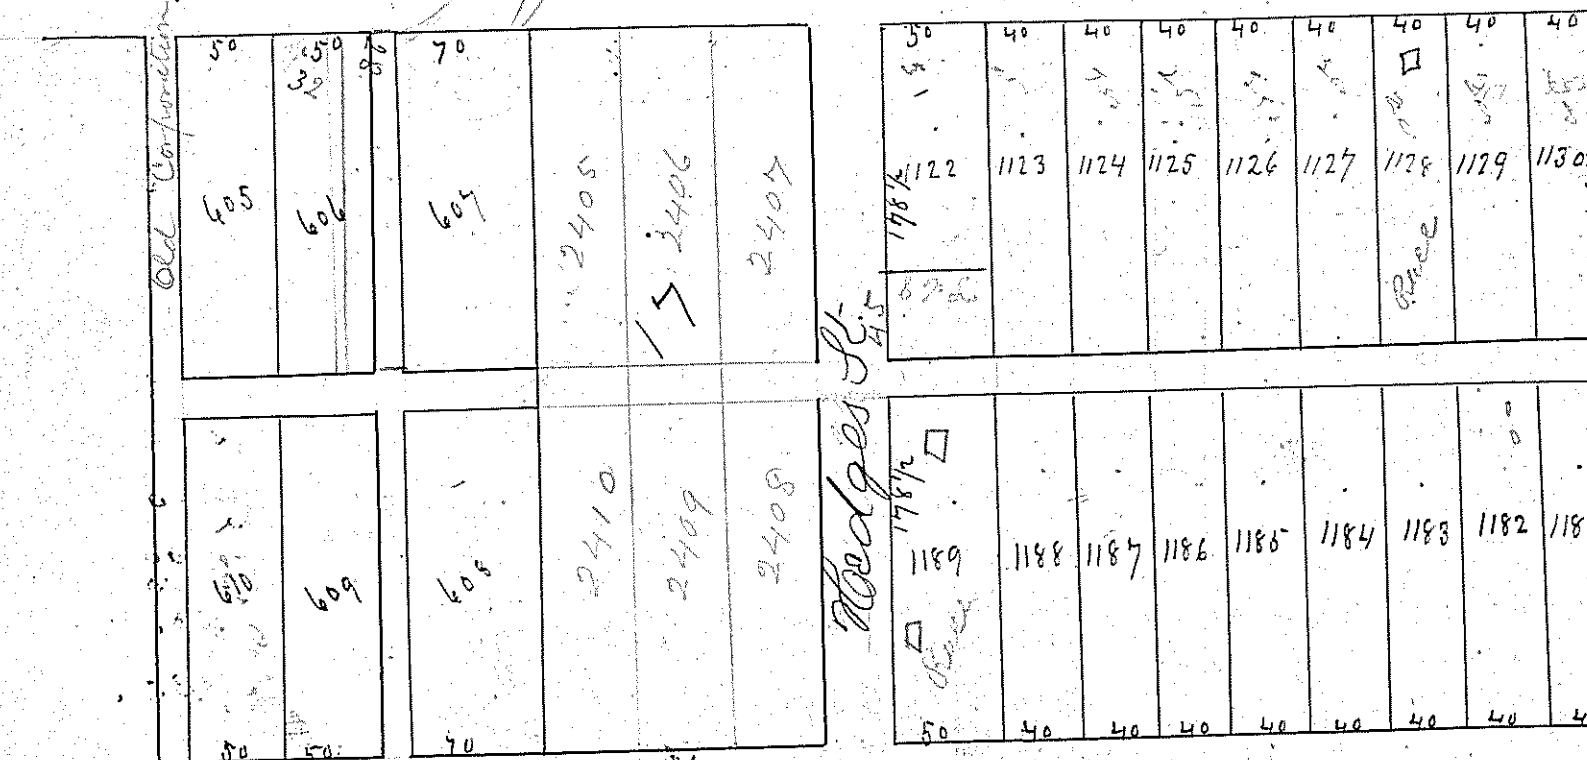 Old Corporation
50 50 70
32
605 606 607 2405 2406 2407
17
610 609 608 2410 2409 2408
50 50 70
Hodges St.
45
50 40 40 40 40 40 40 40 40
1122 1123 1124 1125 1126 1127 1128 1129 1130
178½
178½
1189 1188 1187 1186 1185 1184 1183 1182 118
50 40 40 40 40 40 40 40 4